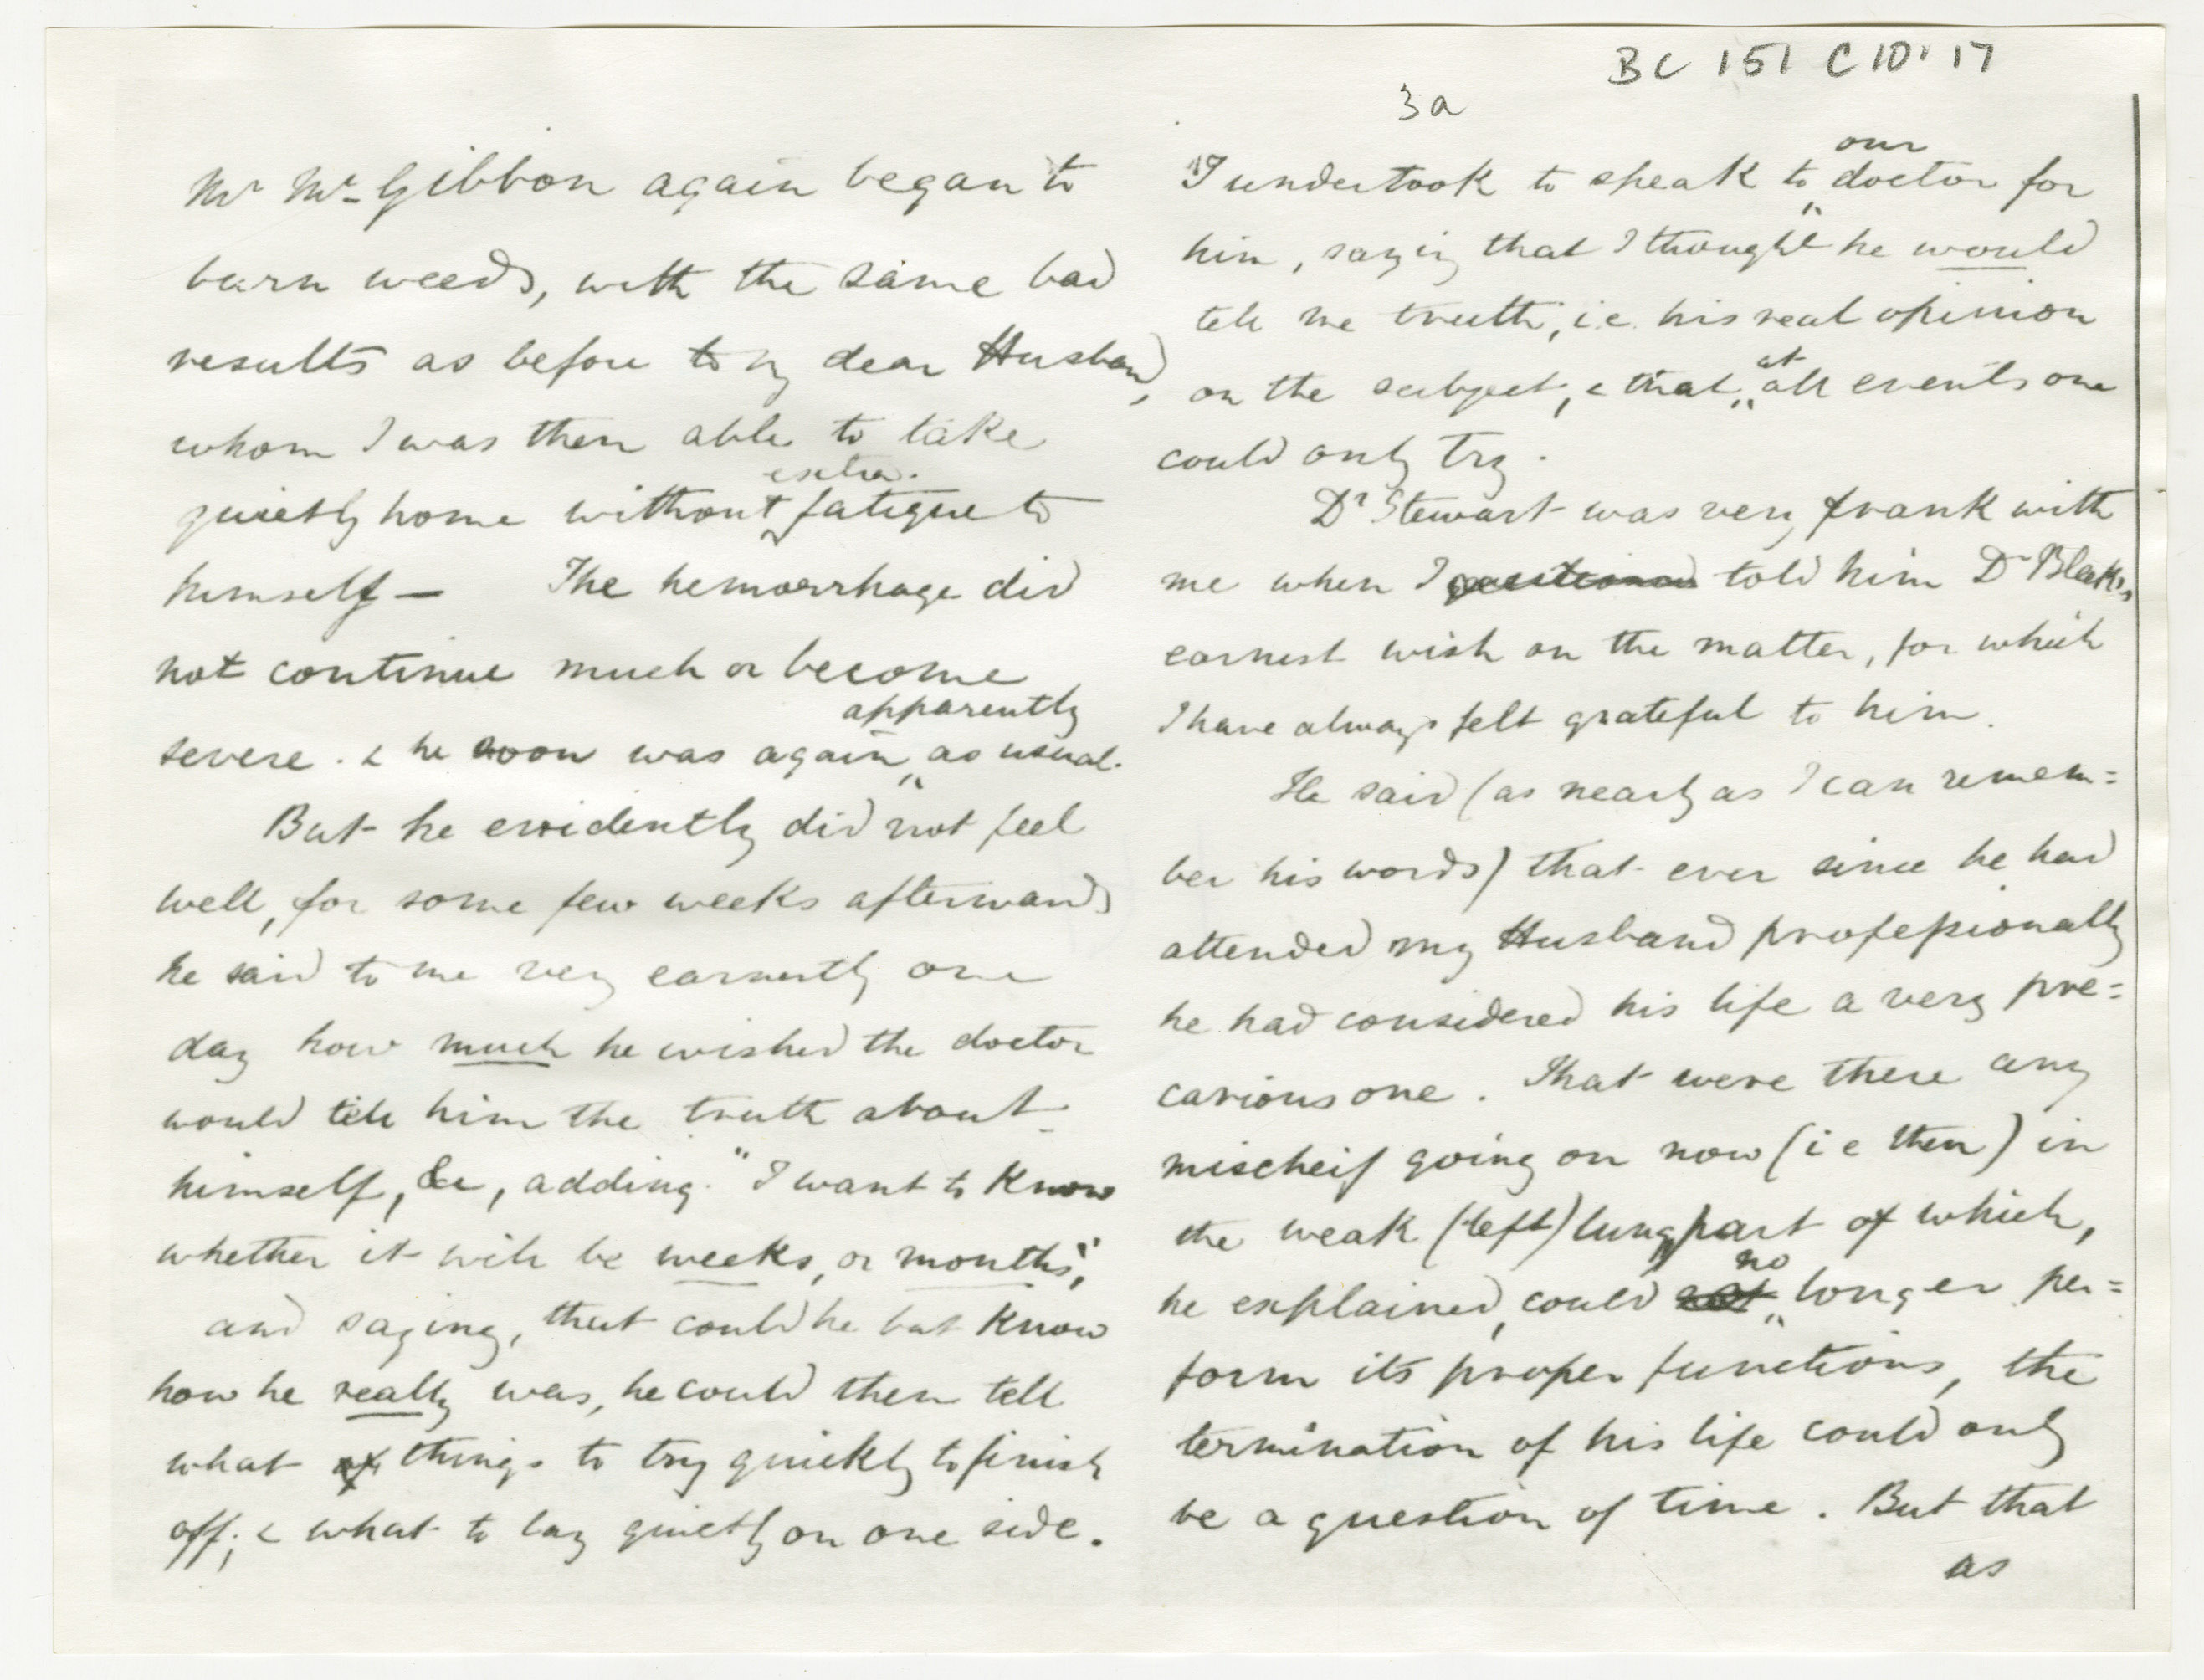 BC 151 C10.17
3a
Mr Mc Gibbon again began to
burn weeds, with the same bad
results as before to my dear Husband,
whom I was then able to take
extra
quietly home without fatigue to
himself — The hemorrhage did
not continue much or become
apparently
severe. & he soon was again as usual.
But he evidently did not feel
well, for some few weeks afterwards
he said to me very earnestly one
day how much he wished the doctor
would tell him the truth about
himself, &c, adding "I want to know
whether it will be weeks, or months",
and saying, that could he but know
how he really was, he could then tell
what of things to try quickly to finish
off; & what to lay quietly on one side.
our
I undertook to speak to doctor for
him, saying that I thought he would
tell me truth, i.e. his real opinion
at
on the subject, & that all events one
could only try.
Dr Stewart was very frank with
me when I questioned told him Dr Bleek's
earnest wish on the matter, for which
I have always felt grateful to him.
He said (as nearly as I can remem=
ber his words) that ever since he had
attended my Husband professionally
he had considered his life a very pre=
carious one. That were there any
mischeif going on now (i e then) in
the weak (left) lung, part of which,
no
he explained, could not longer per=
form its proper functions, the
termination of his life could only
be a question of time. But that
as